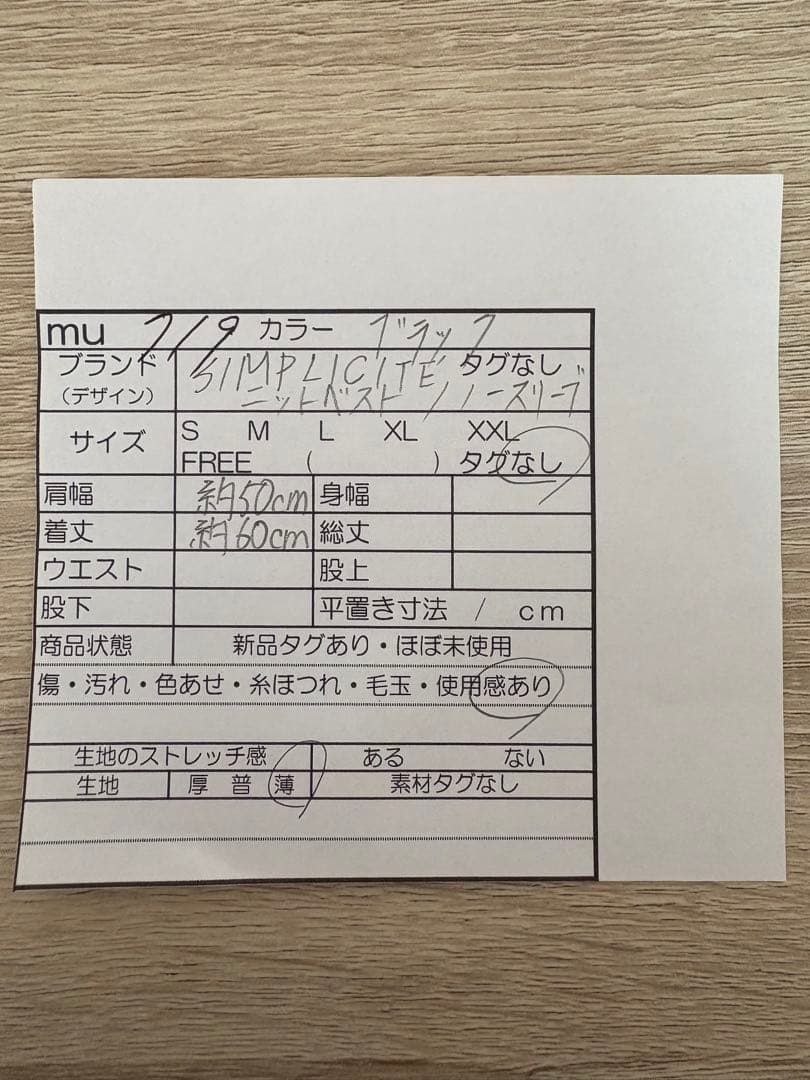 mu 719 カラー ブラック
ブランド SIMPLICITE タグなし
(デザイン) ニットベスト/ノースリーブ
サイズ S M L XL XXL
FREE ( ) タグなし
肩幅 約50cm 身幅
着丈 約60cm 総丈
ウエスト 股上
股下 平置き寸法 / cm
商品状態 新品タグあり・ほぼ未使用
傷・汚れ・色あせ・糸ほつれ・毛玉・使用感あり
生地のストレッチ感 ある ない
生地 厚 普 薄 素材タグなし